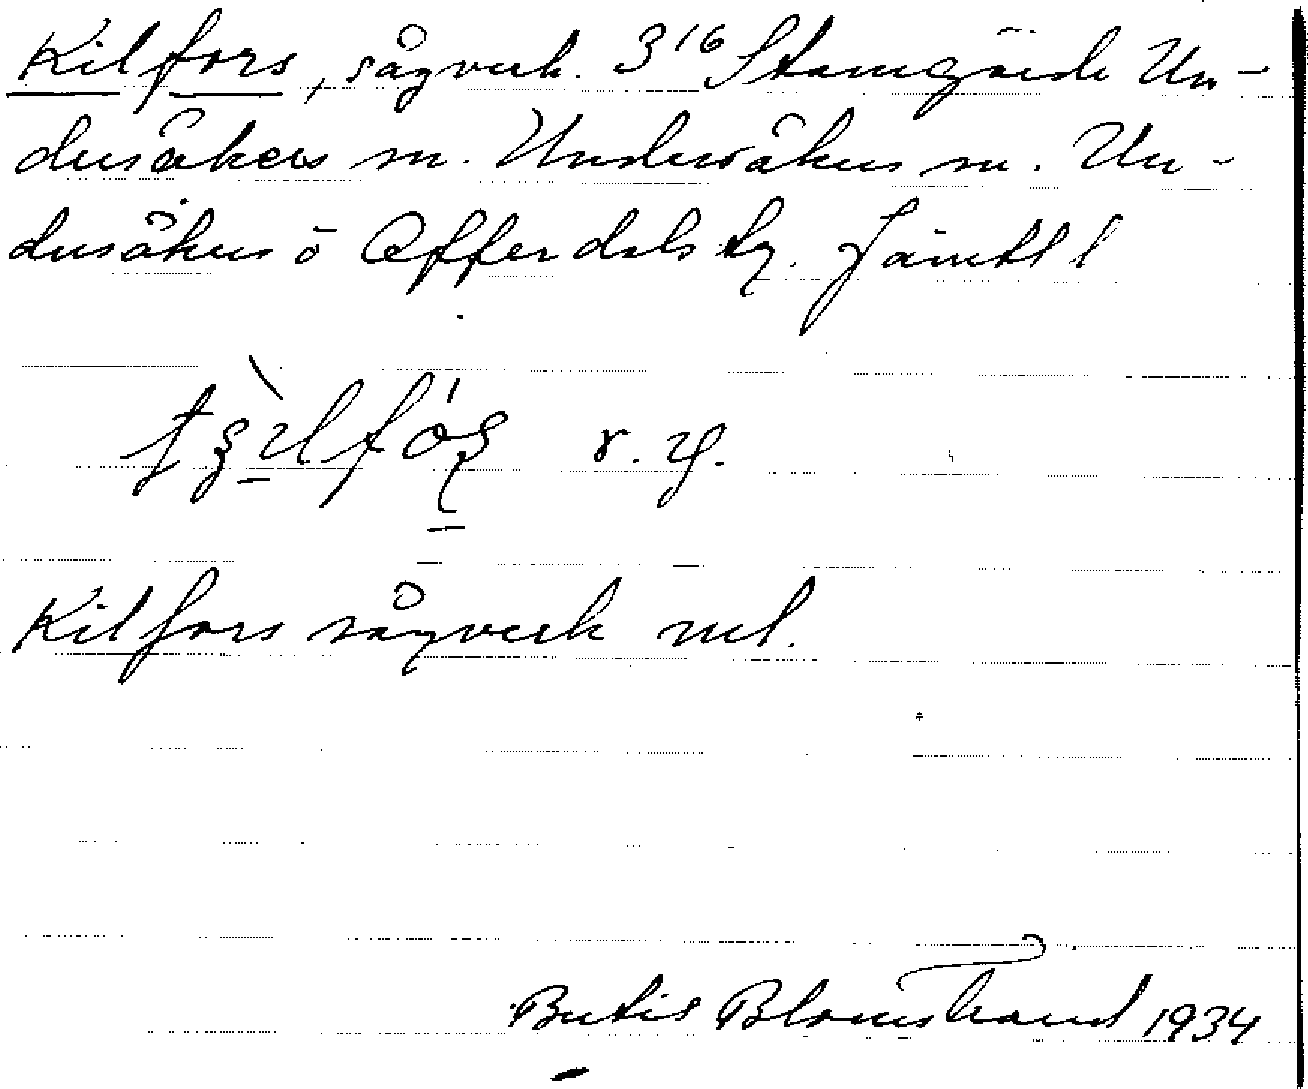 Kilfors, sågverk. 3¹⁶ Stamgärde Un-
dersåkers sn. Undersåkers sn. Un-
dersåkers o Offerdals tg. Jämtl l
r. 
Kilfors sågverk
Bertil Blomstrand 1934